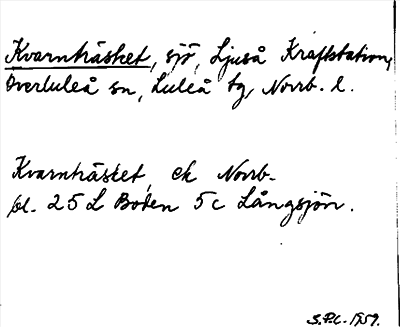 Kvarnträsket, sjö, Ljuså Kraftstation,
Överluleå sn, Luleå tg, Norrb. l.
Kvarnträsket, ek Norrb.
bl. 25 L Boden 5 c Långsjön.
S.P.C. 1959.